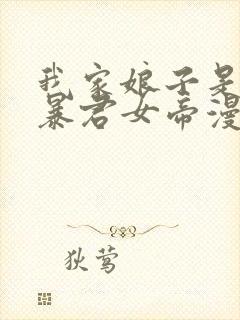 我家娘子是
暴君女帝漫
狄莺